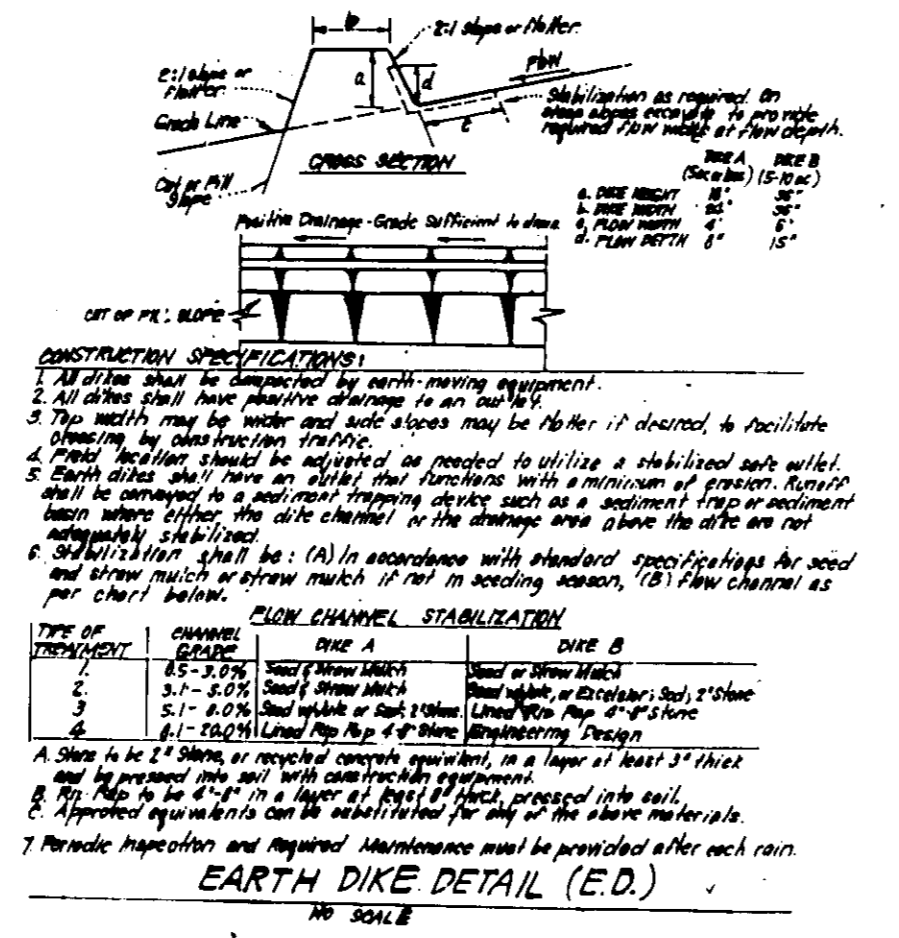 b
2:1 Slope or Flatter.
Flow
2:1 slope or
Flatter.
a
d
Grade Line
c
Stabilization as required. On
steep slopes excavate to provide
required flow width at flow depth.
CROSS SECTION
Cut or Fill
Slope
DIKE A DIKE B
(5ac or less) (5-10 ac)
a. DIKE HEIGHT 18" 36"
b. DIKE WIDTH 24" 36"
c. FLOW WIDTH 4' 6'
d. FLOW DEPTH 8" 15"
Positive Drainage - Grade Sufficient to drain
CUT OR FILL SLOPE
CONSTRUCTION SPECIFICATIONS:
1. All dikes shall be compacted by earth-moving equipment.
2. All dikes shall have positive drainage to an outlet.
3. Top width may be wider and side slopes may be flatter if desired, to facilitate
crossing by construction traffic.
4. Field location should be adjusted as needed to utilize a stabilized safe outlet.
5. Earth dikes shall have an outlet that functions with a minimum of erosion. Runoff
shall be conveyed to a sediment trapping device such as a sediment trap or sediment
basin where either the dike channel or the drainage area above the dike are not
adequately stabilized.
6. Stabilization shall be: (A) In accordance with standard specifications for seed
and straw mulch or straw mulch if not in seeding season, (B) flow channel as
per chart below.
FLOW CHANNEL STABILIZATION
TYPE OF CHANNEL
TREATMENT GRADE DIKE A DIKE B
1. 0.5-3.0% Seed & Straw Mulch Seed or Straw Mulch
2. 3.1-5.0% Seed & Straw Mulch Seed w/Jute, or Excelsior; Sod; 2" Stone
3 5.1-8.0% Seed w/Jute or Sod; 2" Stone Lined Rip Rap 4"-8" Stone
4 8.1-20.0% Lined Rap Rap 4-8" Stone Engineering Design
A. Stone to be 2" Stone, or recycled concrete equivilent, in a layer at least 3" thick
and be pressed into soil with construction equipment.
B. Rip-Rap to be 4"-8" in a layer at least 8" thick, pressed into soil.
C. Approved equivalents can be substituted for any of the above materials.
7. Periodic Inspection and Required Maintenance must be provided after each rain.
EARTH DIKE DETAIL (E.D.)
NO SCALE